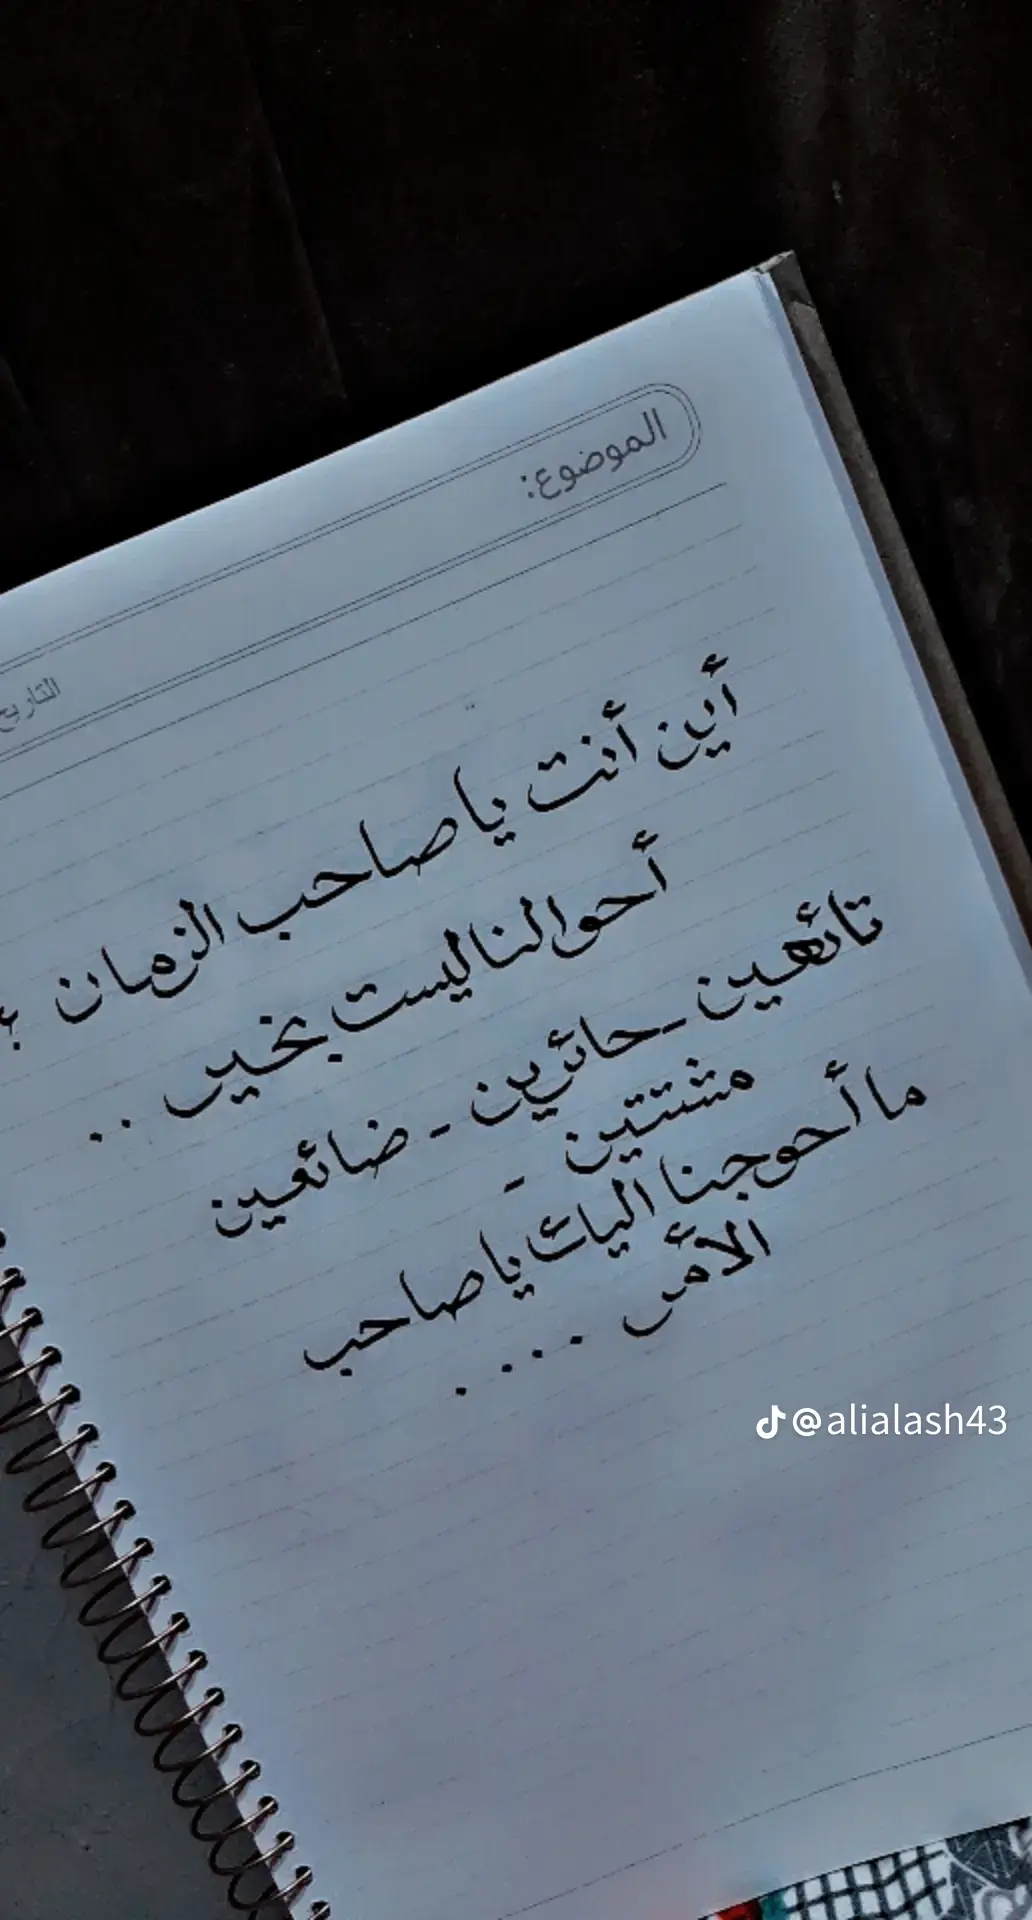 الموضوع:
التاريخ
أين أنت يا صاحب الزمان ؟
أحوالنا ليست بخير ..
تائهين - حائرين - ضائعين
مشتتين -
ما أحوجنا اليك يا صاحب
الأمر ....
@alialash43